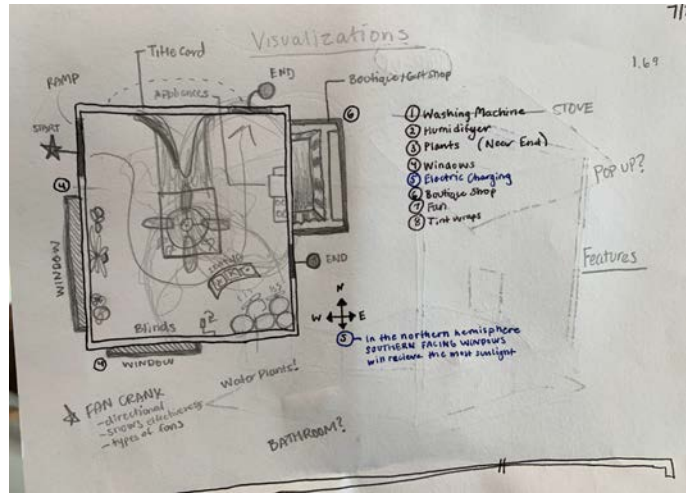 7/
Visualizations
1.69
Title Card
END
Boutique + Gift Shop
RAMP
Appliances
START
6
1 Washing Machine STOVE
2 Humidifyer
3 Plants (Near End)
4 Windows
5 Electric Charging
6 Boutique Shop
7 Fan
8 Tint wraps
POP UP?
Features
4
WINDOW
END
N
W E
S
Blinds
4 WINDOW
5 In the northern hemisphere
SOUTHERN FACING WINDOWS
will recieve the most sunlight
Water Plants!
FAN CRANK
- directional
- shows effectiveness
- types of fans
BATHROOM?